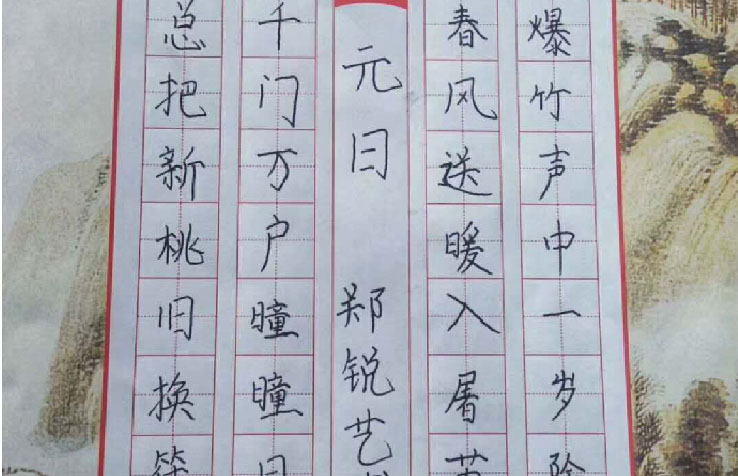 爆竹声中一岁除
春风送暖入屠
元日 郑锐艺
千门万户瞳瞳日
总把新桃旧换